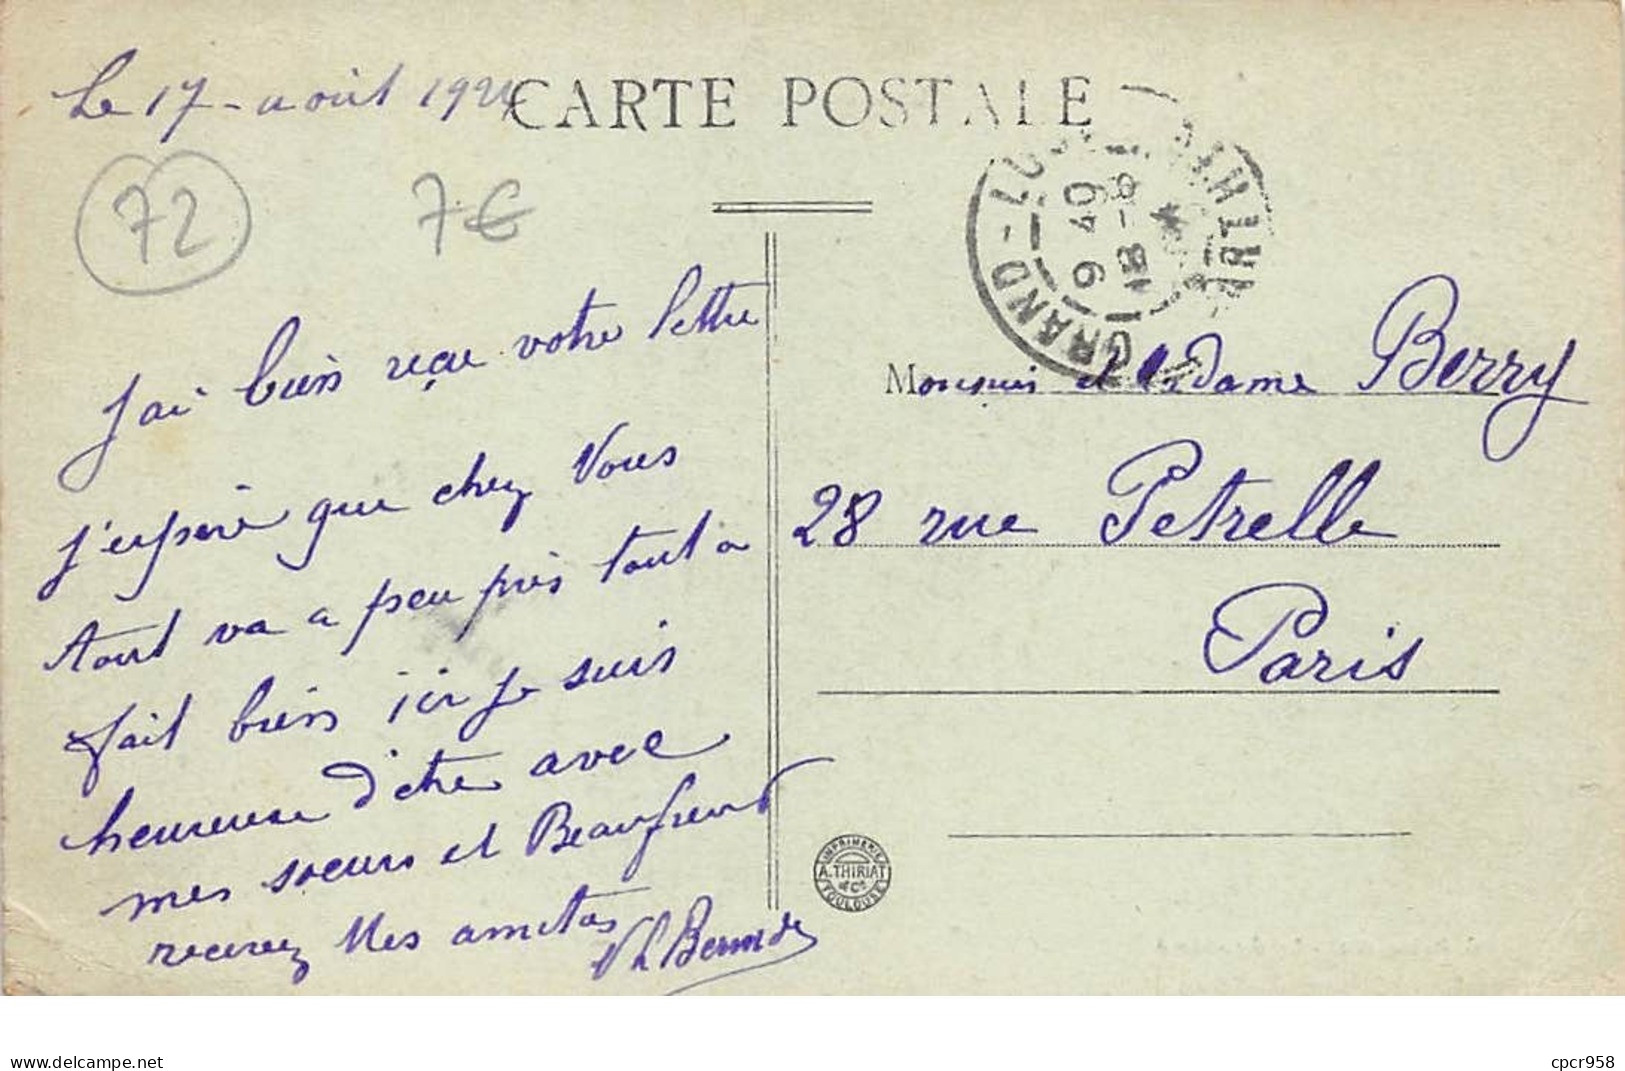 Le 17 - août 1924
CARTE POSTALE
72
7€
GRAND-LUCÉ
SARTHE
9 40
18-8
J'ai bien reçu votre lettre
j'espère que chez Vous
tout va a peu près tout a
fait bien ici je suis
heureuse d'être avec
mes soeurs et
recevez Mes amitas
Monsieur et Madame Berry
28 rue Petrelle
Paris
IMPRIMERIE
A. THIRIAT
& Cie
TOULOUSE
www.delcampe.net
cpcr958